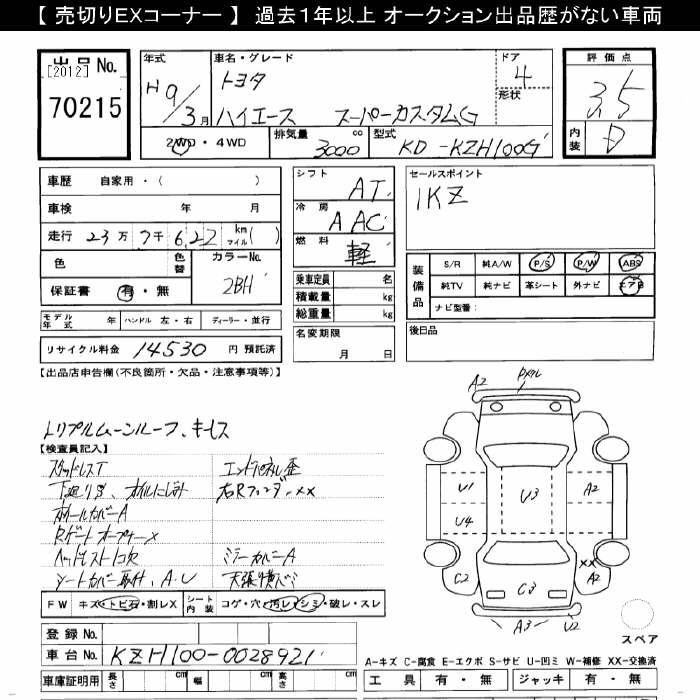 【 売切りEXコーナー 】 過去1年以上 オークション出品歴がない車両
出品 No.
[2012]
70215
年式
H9/3月
車名・グレード
トヨタ
ハイエース スーパーカスタムG
ドア
4
形状
2WD・4WD
排気量
3000
cc
型式
KD-KZH100G
評価点
3.5
内装
D
車歴 自家用・( )
車検 年 月
走行 23万7千622 km マイル( )
色
色替
カラーNo.
2BH
保証書 有・無
モデル年式 年
ハンドル 左・右
ディーラー・並行
リサイクル料金 14530 円 預託済
シフト
AT
冷房
AAC
燃料
軽
乗車定員 名
積載量 kg
総重量 kg
名変期限
月 日
セールスポイント
1KZ
装備品
S/R 純A/W P/S P/W ABS
純TV 純ナビ 革シート 外ナビ エアB
ナビ型番：
後日品
【出品店申告欄(不良箇所・欠品・注意事項等)】
トリプルムーンルーフ、キーレス
【検査員記入】
スタッドレスT
エンドパネル歪
下廻りサビ、オイルにじみ
右Rフェンダーxx
ホイールカバーA
Rゲートオープナーx
ヘッドレスト1コ欠
ミラーカバーA
シートカバー取付、A.U
天張り横バミ
FW キズ・トビ石・割レX
シート内装 コゲ・穴・汚レ・シミ・破レ・スレ
登録 No.
車台 No. KZH100-0028921
車庫証明用 長さ cm 幅 cm 高さ cm
A2
メクレ
U1
U4
U3
A2
C2
C3
xx
A2
A3
U2
スペア
A-キズ C-腐食 E-エクボ S-サビ U-凹ミ W-補修 XX-交換済
工具 有・無 ジャッキ 有・無